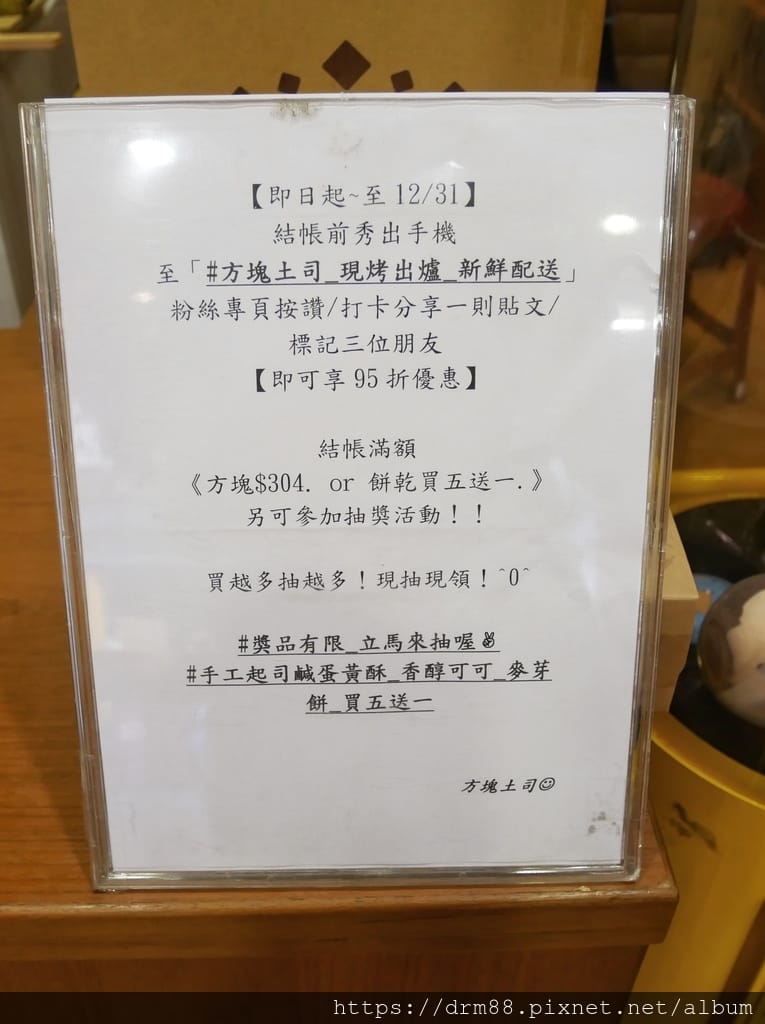 【即日起~至 12/31】
結帳前秀出手機
至「#方塊土司_現烤出爐_新鮮配送」
粉絲專頁按讚/打卡分享一則貼文/
標記三位朋友
【即可享 95 折優惠】
結帳滿額
《方塊$304. or 餅乾買五送一.》
另可參加抽獎活動！！
買越多抽越多！現抽現領！^0^
#獎品有限_立馬來抽喔✌
#手工起司鹹蛋黃酥_香醇可可_麥芽
餅_買五送一
方塊土司☺
https://drm88.pixnet.net/album